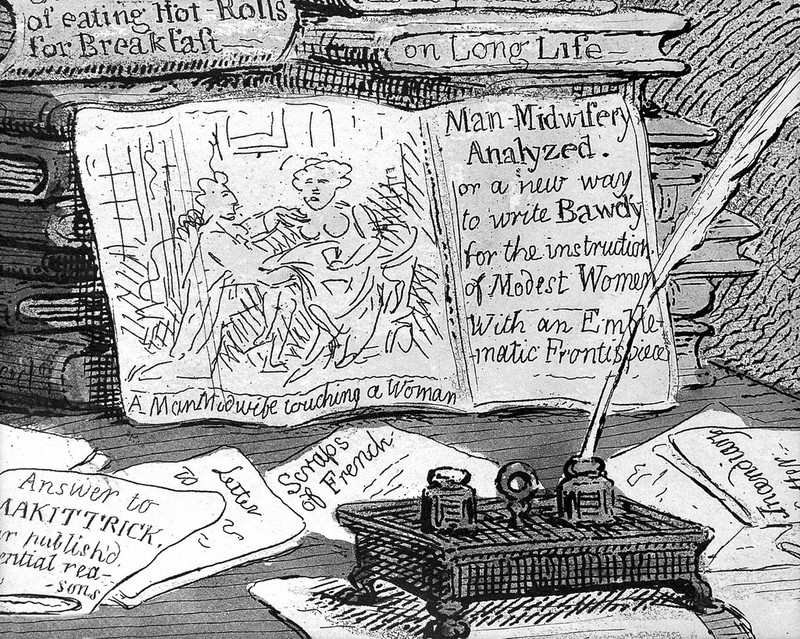 of eating Hot-Rolls
for Breakfast
on Long Life
Man-Midwifery
Analyzed.
or a new way
to write Bawdy
for the instruction
of Modest Women
With an Emble-
-matic Frontispiece
A Man Midwife touching a Woman
Scraps
of French
Letter
to
Answer to
MAKITTRICK.
publish'd
rea-
-sons
Incendiary